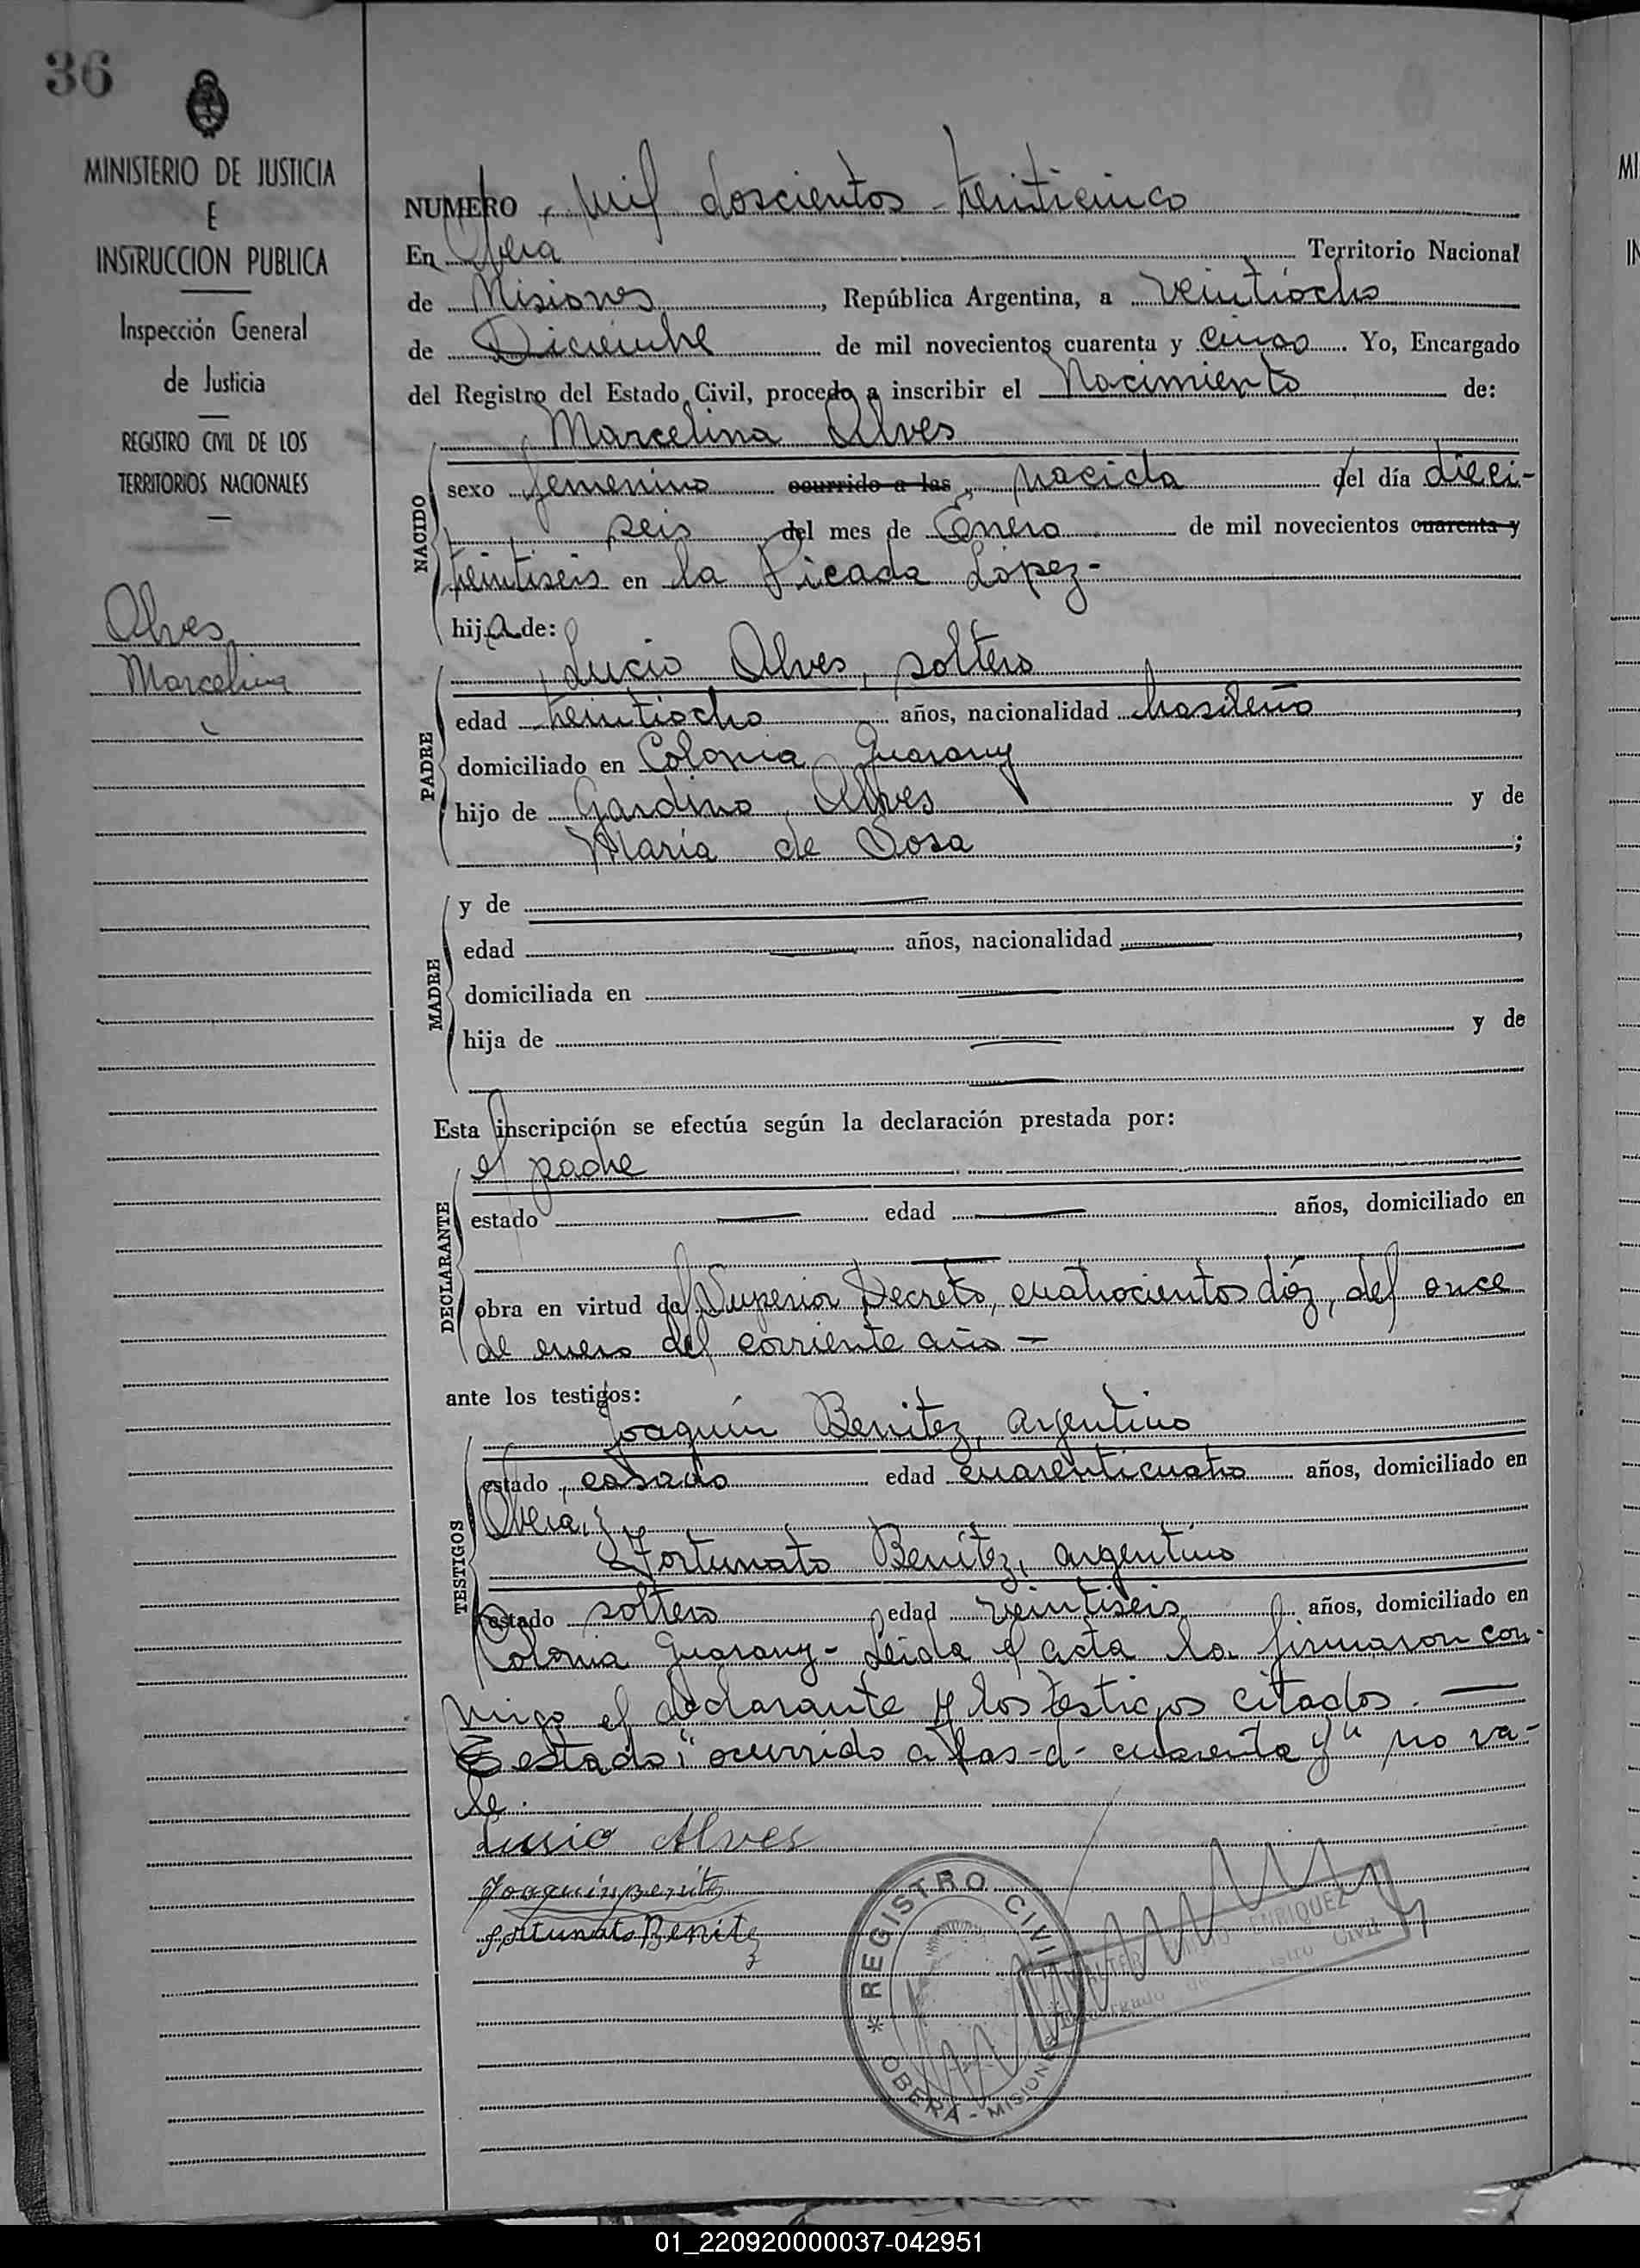 36
MINISTERIO DE JUSTICIA
E
INSTRUCCION PUBLICA
Inspección General
de Justicia
REGISTRO CIVIL DE LOS
TERRITORIOS NACIONALES
Alves
Marcelina
NUMERO, Mil doscientos treinticinco
En Oberá Territorio Nacional
de Misiones, República Argentina, a veintiocho
de Diciembre de mil novecientos cuarenta y cinco. Yo, Encargado
del Registro del Estado Civil, procedo a inscribir el Nacimiento de:
NACIDO
Marcelina Alves
sexo femenino ocurrido a las, nacida del día dieci-
seis del mes de Enero de mil novecientos cuarenta y
treintiseis en la Picada López-
hija de:
PADRE
Lucio Alves, soltero
edad treintiocho años, nacionalidad brasileño,
domiciliado en Colonia Guarany
hijo de Gardino Alves y de
María de Rosa;
MADRE
y de
edad años, nacionalidad,
domiciliada en
hija de y de
Esta inscripción se efectúa según la declaración prestada por:
DECLARANTE
el padre
estado edad años, domiciliado en
obra en virtud del Superior Decreto, cuatrocientos diez, del once
de enero del corriente año -
ante los testigos:
TESTIGOS
Joaquín Benitez, argentino
estado, casado edad cuarenticuatro años, domiciliado en
Oberá, y
Fortunato Benítez, argentino
estado soltero edad veintiseis años, domiciliado en
Colonia Guarany- Leida el acta la firmaron con-
migo el declarante y los testigos citados. —
Testado: "ocurrido a las-d- cuarenta y" no va-
le.
Lucio Alves
Joaquín Benitez
fortunato Benitez
* REGISTRO CIVIL
OBERÁ - MISIONES
WALTER ENRIQUEZ
Encargado del Registro Civil
01_220920000037-042951